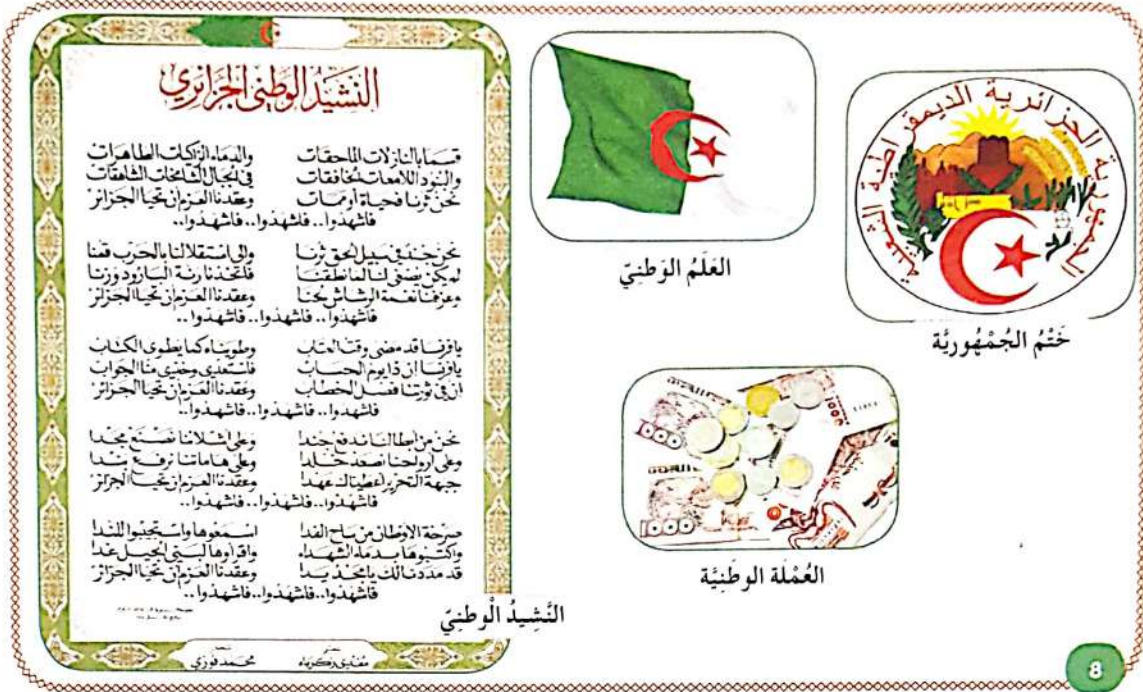 النشيد الوطني الجزائري
قسما بالنازلات الماحقات والدماء الزاكيات الطاهرات
والبنود اللامعات الخافقات في الجبال الشامخات الشاهقات
نحن ثرنا فحياة أو ممات وعقدنا العزم أن تحيا الجزائر
فاشهدوا.. فاشهدوا.. فاشهدوا..
نحن جند في سبيل الحق ثرنا وإلى استقلالنا بالحرب قمنا
لم يكن يصغى لنا لما نطقنا فاتخذنا رنة البارود وزنا
وعزفنا نغمة الرشاش لحنا وعقدنا العزم أن تحيا الجزائر
فاشهدوا.. فاشهدوا.. فاشهدوا..
يا فرنسا قد مضى وقت العتاب وطويناه كما يطوى الكتاب
يا فرنسا ان ذا يوم الحساب فاستعدي وخذي منا الجواب
ان في ثورتنا فصل الخطاب وعقدنا العزم أن تحيا الجزائر
فاشهدوا.. فاشهدوا.. فاشهدوا..
نحن من أبطالنا ندفع جندا وعلى أشلائنا نصنع مجدا
وعلى أرواحنا نصعد خلدا وعلى هاماتنا نرفع بندا
جبهة التحرير أعطيناك عهدا وعقدنا العزم أن تحيا الجزائر
فاشهدوا.. فاشهدوا.. فاشهدوا..
صرخة الأوطان من ساح الفدا اسمعوها واستجيبوا للندا
واكتبوها بدماء الشهداء واقرأوها لبني الجيل غدا
قد مددنا لك يا مجد يدا وعقدنا العزم أن تحيا الجزائر
فاشهدوا.. فاشهدوا.. فاشهدوا..
مفدي زكرياء
محمد فوزي
النَّشِيدُ الْوطنِيّ
العَلَمُ الوَطنِيّ
الجمهورية الجزائرية الديمقراطية الشعبية
خَتْمُ الجُمْهُوريَّة
1000
1000
العُمْلَة الوطَنِيَّة
8